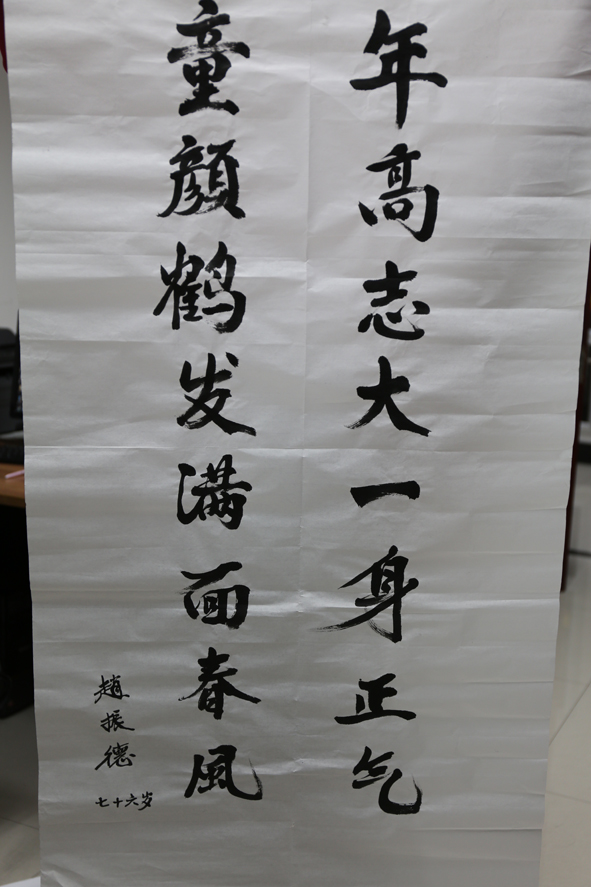 年高志大一身正气
童顔鹤发满面春風
趙振德
七十六岁